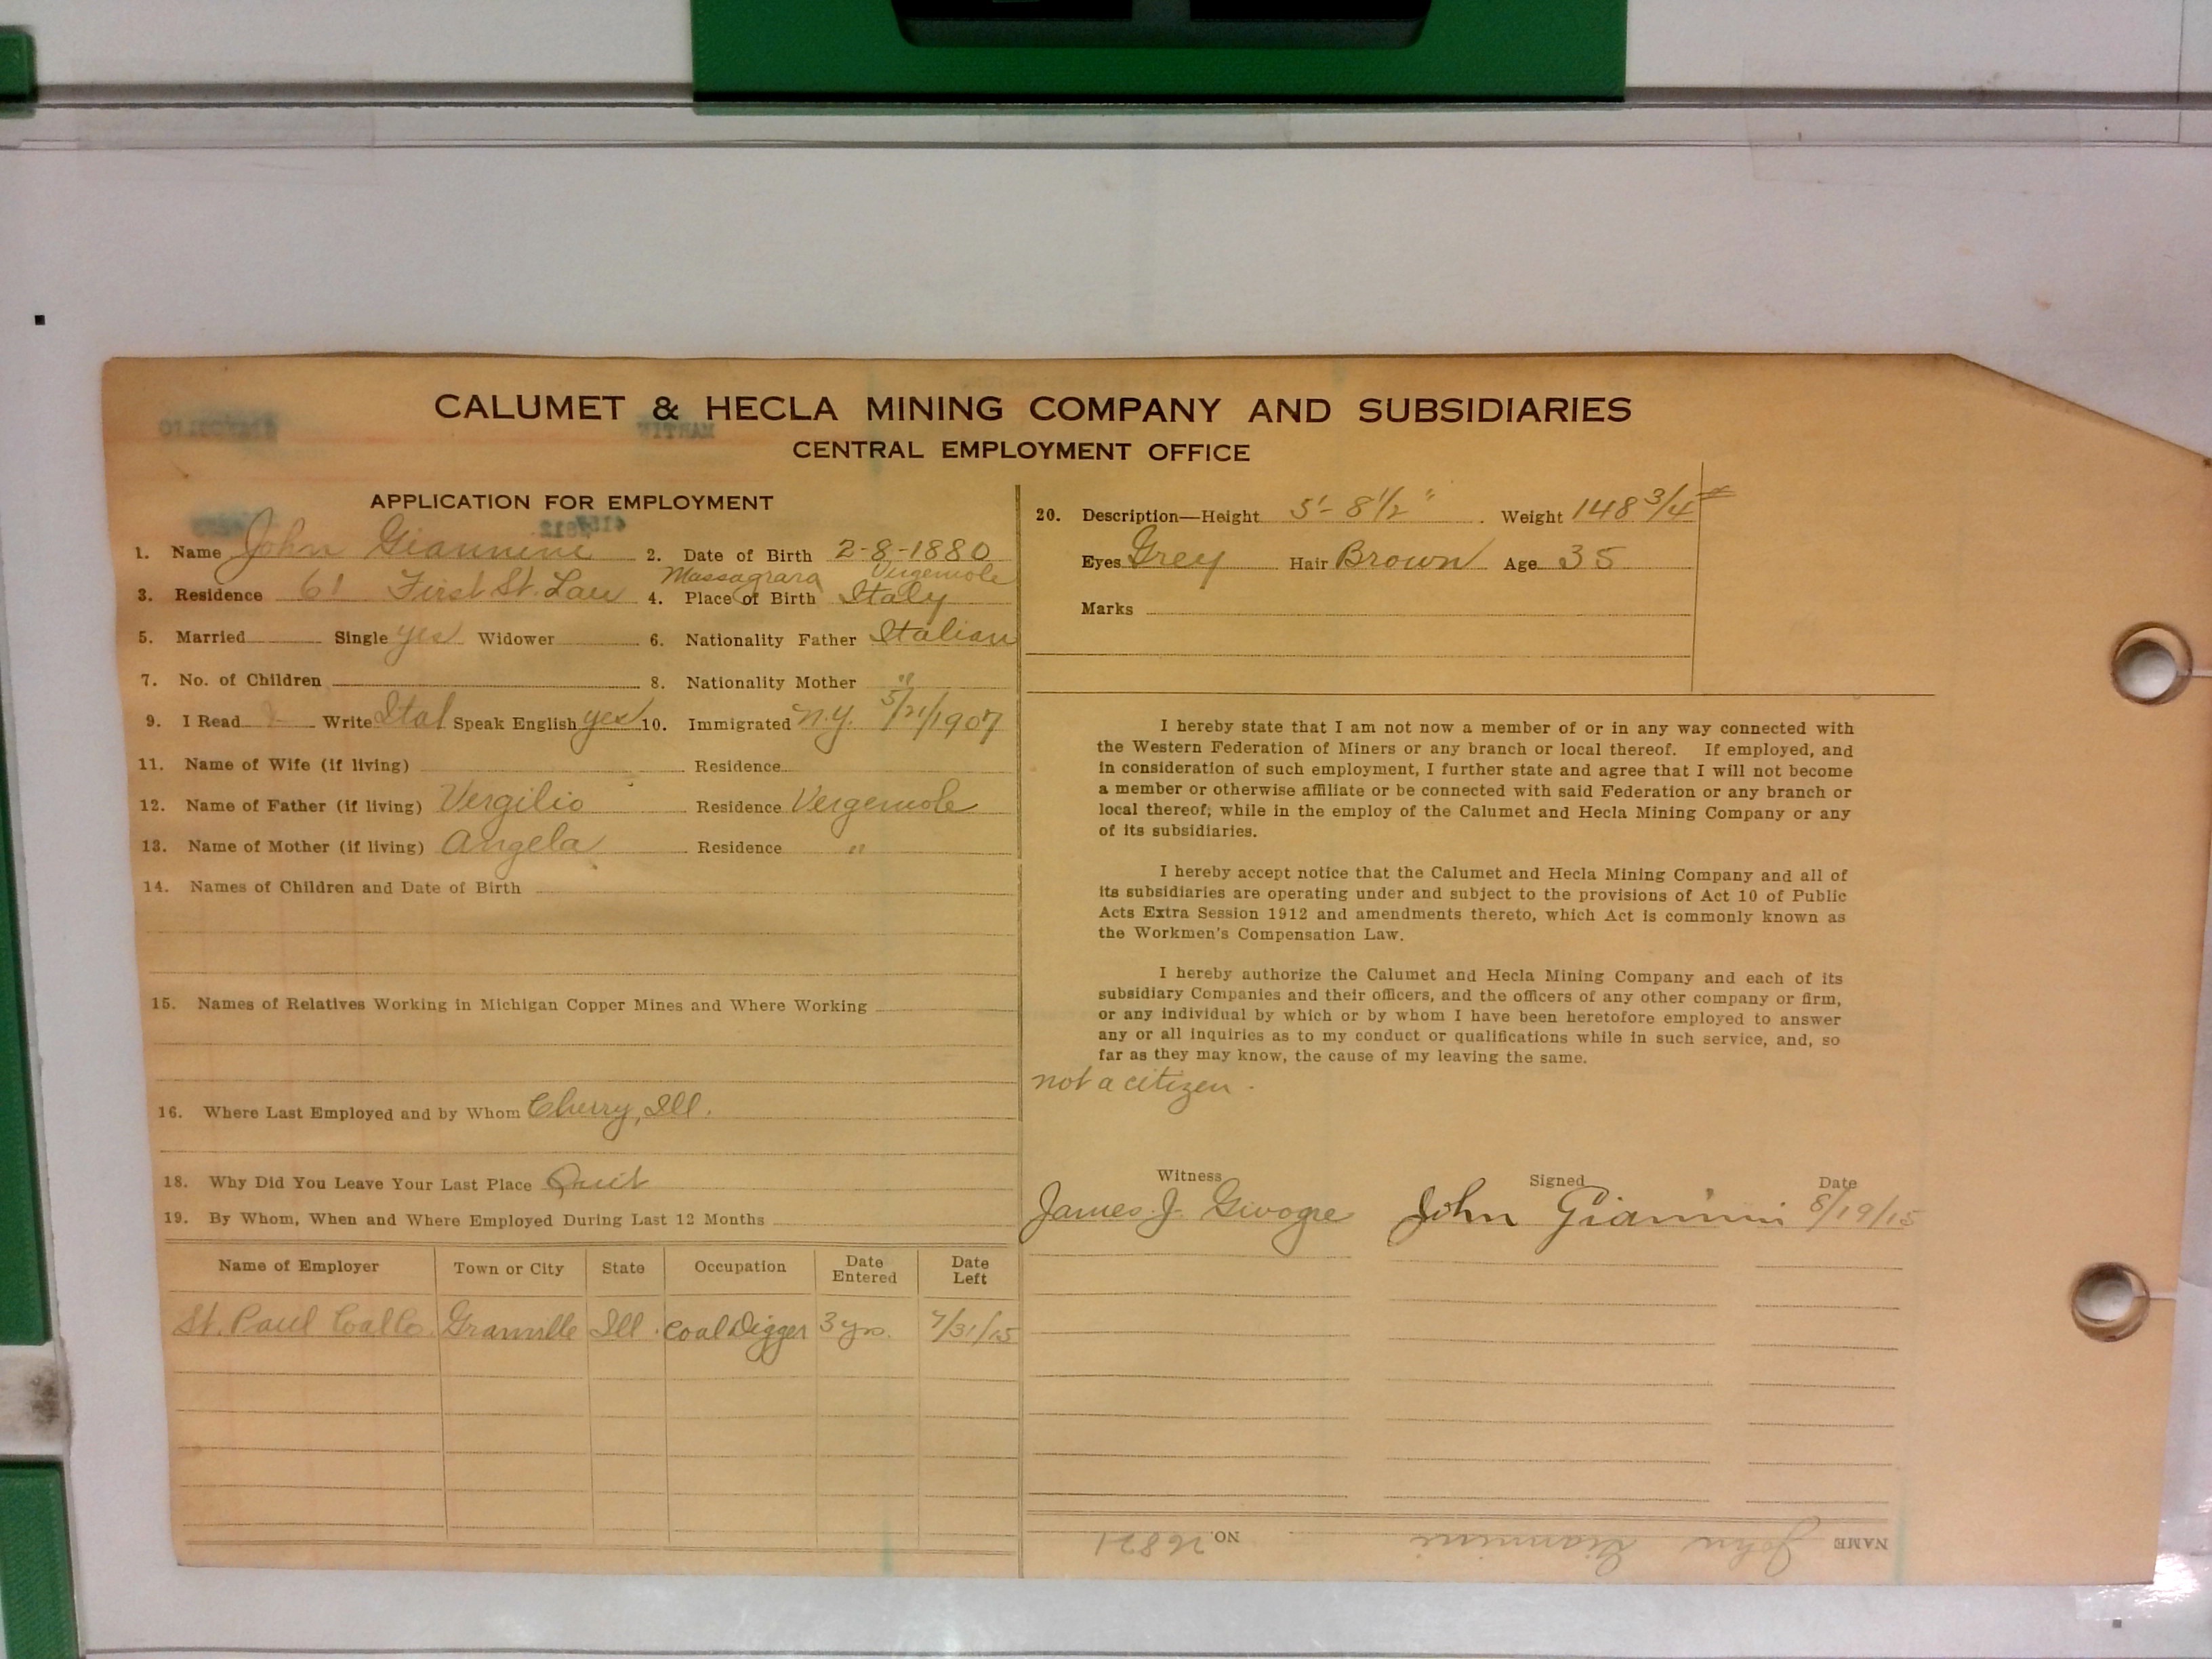 CALUMET & HECLA MINING COMPANY AND SUBSIDIARIES
CENTRAL EMPLOYMENT OFFICE
APPLICATION FOR EMPLOYMENT
1. Name John Giannini 2. Date of Birth 2-8-1880
Massagrara Vergemole
3. Residence 61 First St. Lau 4. Place of Birth Italy
5. Married Single yes Widower 6. Nationality Father Italian
7. No. of Children 8. Nationality Mother "
9. I Read Write Ital Speak English yes 10. Immigrated N.Y. 5/21/1907
11. Name of Wife (if living) Residence
12. Name of Father (if living) Vergilio Residence Vergemole
13. Name of Mother (if living) Angela Residence "
14. Names of Children and Date of Birth
15. Names of Relatives Working in Michigan Copper Mines and Where Working
16. Where Last Employed and by Whom Cherry, Ill.
18. Why Did You Leave Your Last Place Quit
19. By Whom, When and Where Employed During Last 12 Months
Name of Employer Town or City State Occupation Date Entered Date Left
St. Paul Coal Co. Granville Ill. Coal Digger 3 yrs. 7/31/15
20. Description—Height 5'-8 1/2" Weight 148 3/4 #
Eyes Grey Hair Brown Age 35
Marks
I hereby state that I am not now a member of or in any way connected with
the Western Federation of Miners or any branch or local thereof. If employed, and
in consideration of such employment, I further state and agree that I will not become
a member or otherwise affiliate or be connected with said Federation or any branch or
local thereof; while in the employ of the Calumet and Hecla Mining Company or any
of its subsidiaries.
I hereby accept notice that the Calumet and Hecla Mining Company and all of
its subsidiaries are operating under and subject to the provisions of Act 10 of Public
Acts Extra Session 1912 and amendments thereto, which Act is commonly known as
the Workmen's Compensation Law.
I hereby authorize the Calumet and Hecla Mining Company and each of its
subsidiary Companies and their officers, and the officers of any other company or firm,
or any individual by which or by whom I have been heretofore employed to answer
any or all inquiries as to my conduct or qualifications while in such service, and, so
far as they may know, the cause of my leaving the same.
not a citizen.
Witness Signed Date
James J. John Giannini 8/19/15
NAME John Giannini NO. 26821